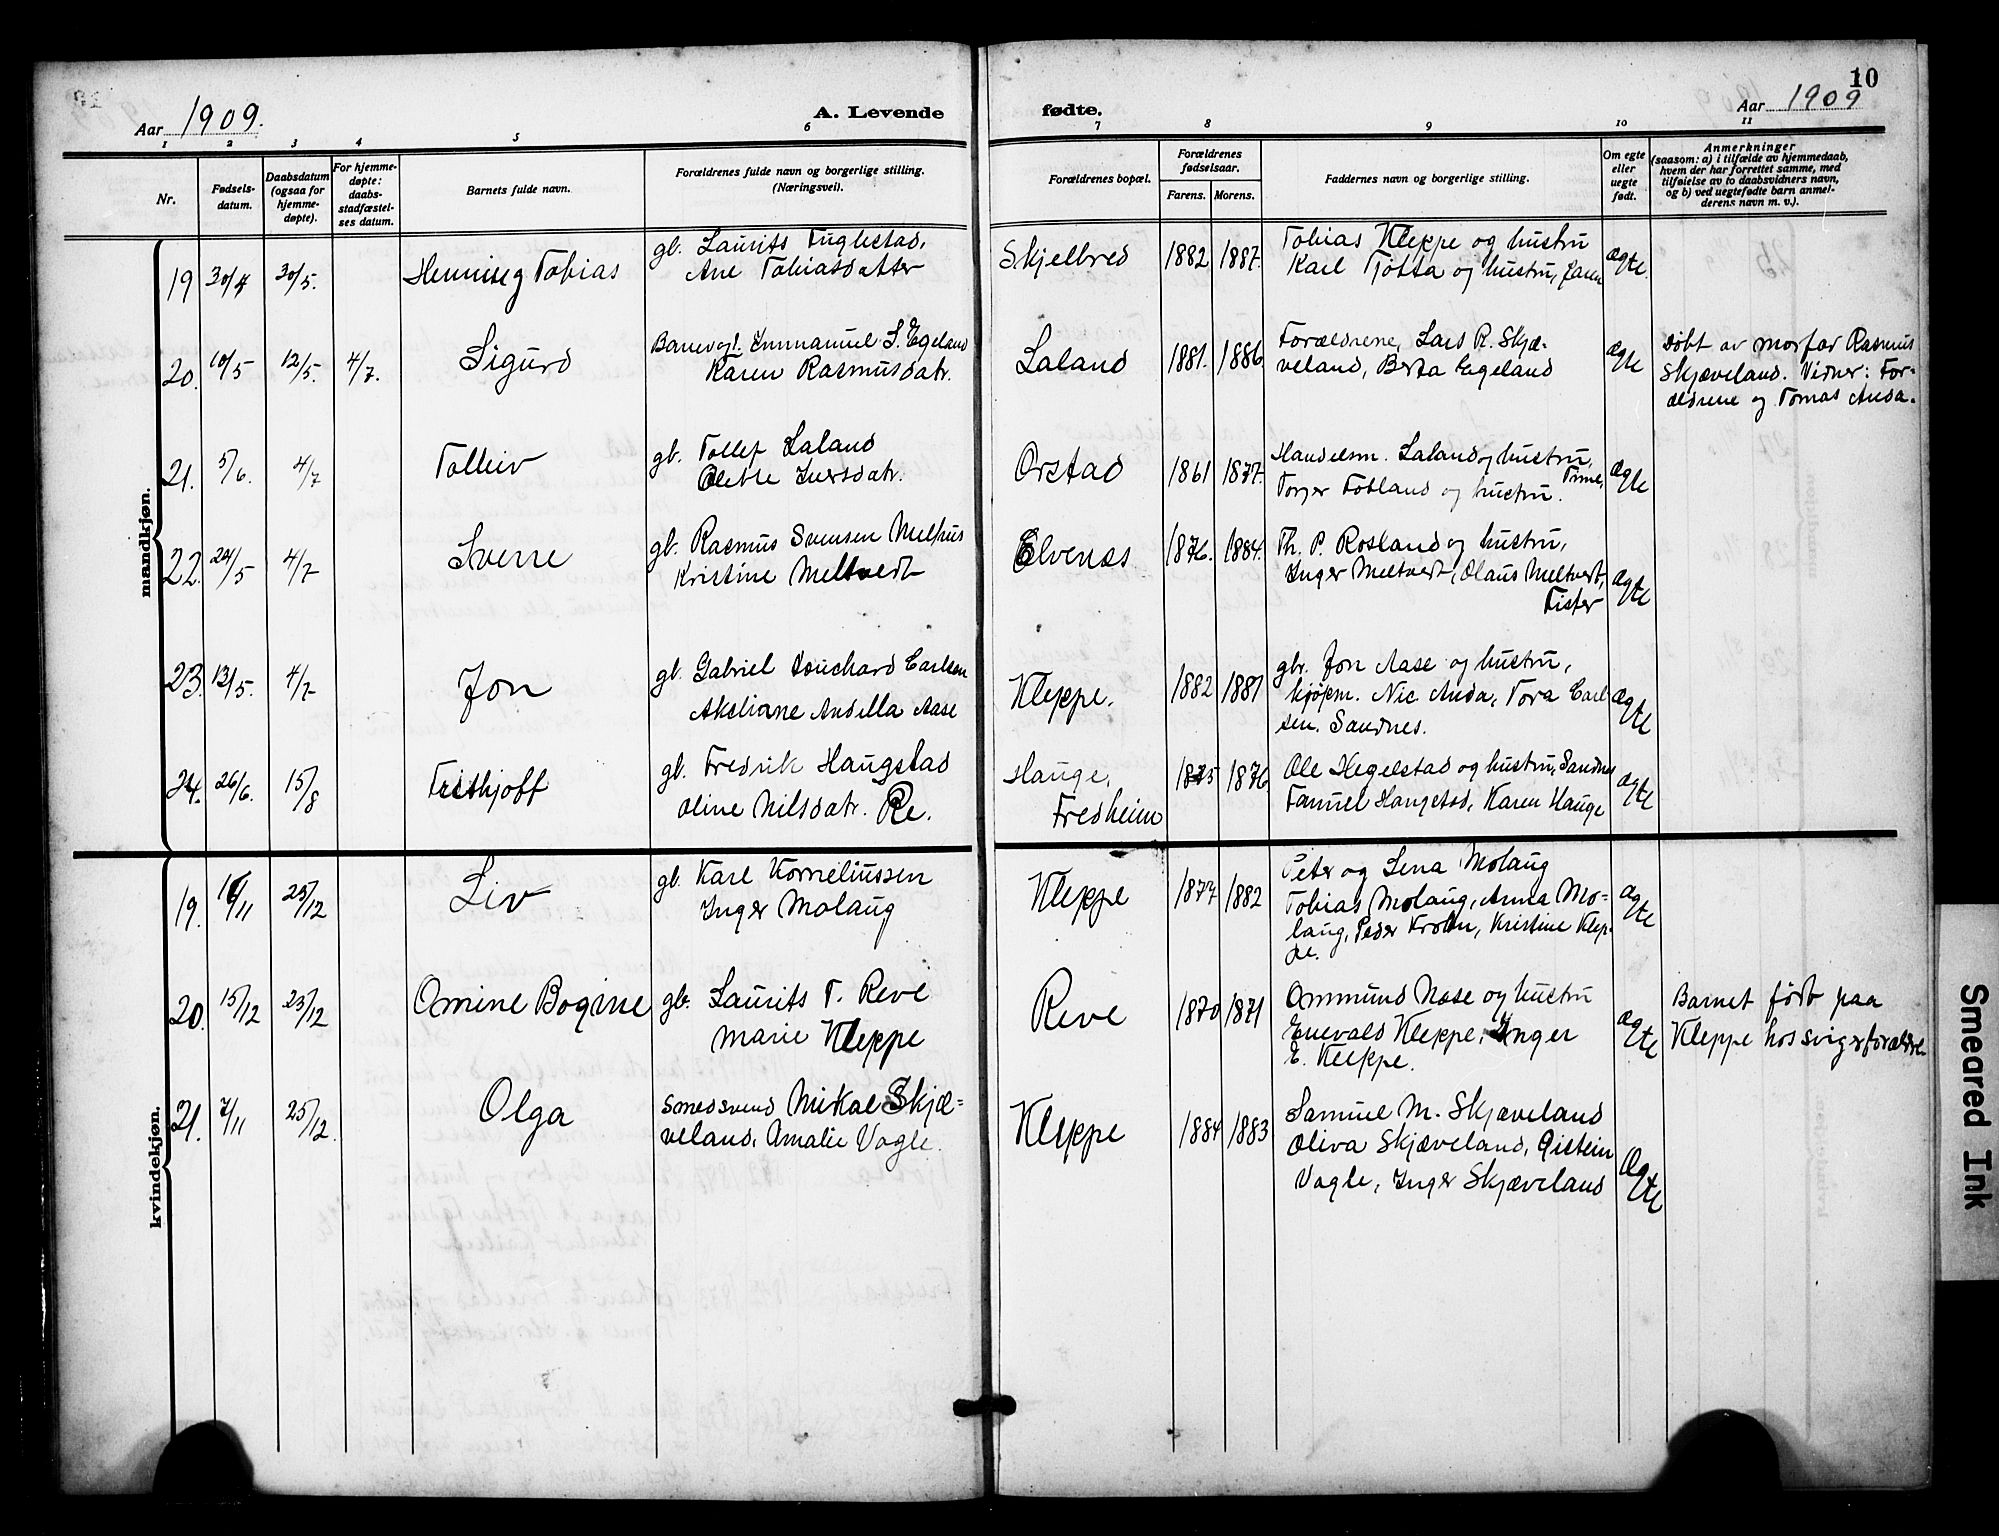 10
Aar 1909.
A. Levende
fødte.
Aar 1909
1 2 3 4 5 6 7 8 9 10 11
Nr.
Fødsels-
datum.
Daabsdatum
(ogsaa for
hjemme-
døpte).
For hjemme-
døpte:
daabs-
stadfæstel-
ses datum.
Barnets fulde navn.
Forældrenes fulde navn og borgerlige stilling.
(Næringsvei).
Forældrenes bopæl.
Forældrenes
fødselsaar.
Farens. Morens.
Faddernes navn og borgerlige stilling.
Om egte
eller
uegte
født.
Anmerkninger
(saasom: a) i tilfælde av hjemmedaab,
hvem der har forrettet samme, med
tilføielse av to daabsvidners navn,
og b) ved uegtefødte barn anmel-
derens navn m. v.).
mandkjøn.
19 30/4 30/5. Henning Tobias
gb. Laurits Fuglestad,
Ane Tobiasdatter
Skjelbred 1882 1887.
Tobias Kleppe og hustru
Karl Tjøtta og hustru, Jaren
ægte.
20. 10/5 12/5. 4/7. Sigurd
Emmanuel S. Egeland
Karen Rasmusdatr.
Laland 1881. 1886
Forældrene, Lars R. Skjæ-
veland, Berta Egeland
ægte
døbt av morfar Rasmus
Skjæveland. Vidner: For-
ældrene og Tomas Anda.
21. 5/6. 4/7 Tolleiv
gb. Tollef Laland
Olette Iversdatr.
Orstad 1861 1877.
Handelsm. Laland og hustru,
Time,
Torger Fotland og hustru.
ægte
22. 24/5 4/7 Sverre
gb. Rasmus Svensen Melhus
Kristine Meltvedt
Elvenæs 1876. 1884.
Th. P. Rosland og hustru,
Inger Meltvedt, Olaus Meltvedt,
Fister
ægte
23. 13/5. 4/7 Jon
gb. Gabriel Carlsen
Akseliane Andella Aase
Kleppe. 1882 1881
gbr. Jon Aase og hustru,
kjøpm. Nic Anda, Tora Carl
sen. Sandnes.
ægte
24. 26/6. 15/8 Frithjoff
gb. Fredrik Haugstad
Oline Nilsdatr. Re.
Hauge,
Fredheim
1875 1876
Ole Hegelstad og hustru, Sandnes
Samuel Haugstad, Karen Hauge
ægte
kvindekjøn.
19. 16/11 25/12 Liv
gb. Karl Korneliussen
Inger Molaug
Kleppe 1877 1882
Peter og Lena Molaug
Tobias Molaug, Anna Mo-
laug, Peder Krohn, Kristine Klep-
pe.
ægte
20. 15/12 23/12 Omine Bogine
gb. Laurits T. Reve
Marie Kleppe
Reve 1870 1871
Ommund Næse og hustru
Enevald Kleppe, Inger
E. Kleppe.
ægte
Barnet født paa
Kleppe hos svigerforældre
21. 7/11 25/12. Olga
Smedsvend Mikal Skjæ-
veland, Amalie Vagle.
Kleppe 1884 1883
Samuel M. Skjæveland
Oliva Skjæveland, Øistein
Vagle, Inger Skjæveland
Ægte
Smeared Ink